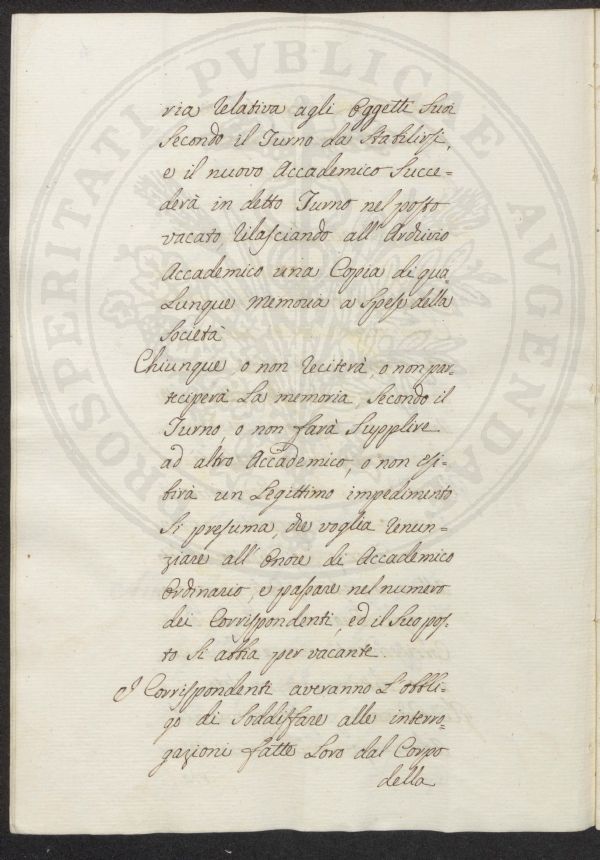 PROSPERITATI PVBLICAE AVGENDAE
ria relativa agli Oggetti Suoi
Secondo il Turno da Stabilirsi,
e il nuovo Accademico Succe-
derà in detto Turno nel posto
vacato rilasciando all' Archivio
Accademico una Copia di qua
Lunque memoria a Spese della
Società
Chiunque, o non reciterà, o non par-
teciperà La memoria, Secondo il
Turno, o non farà Supplire
ad altro Accademico, o non esi-
birà un Legittimo impedimento
Si presuma, che voglia renun-
ziare all' Onore di Accademico
Ordinario, e passare nel numero
dei Corrispondenti, ed il Suo pos-
to Si abbia per vacante
I Corrispondenti averanno L'obbli-
go di Soddisfare alle interro-
gazioni fatte Loro dal Corpo
della